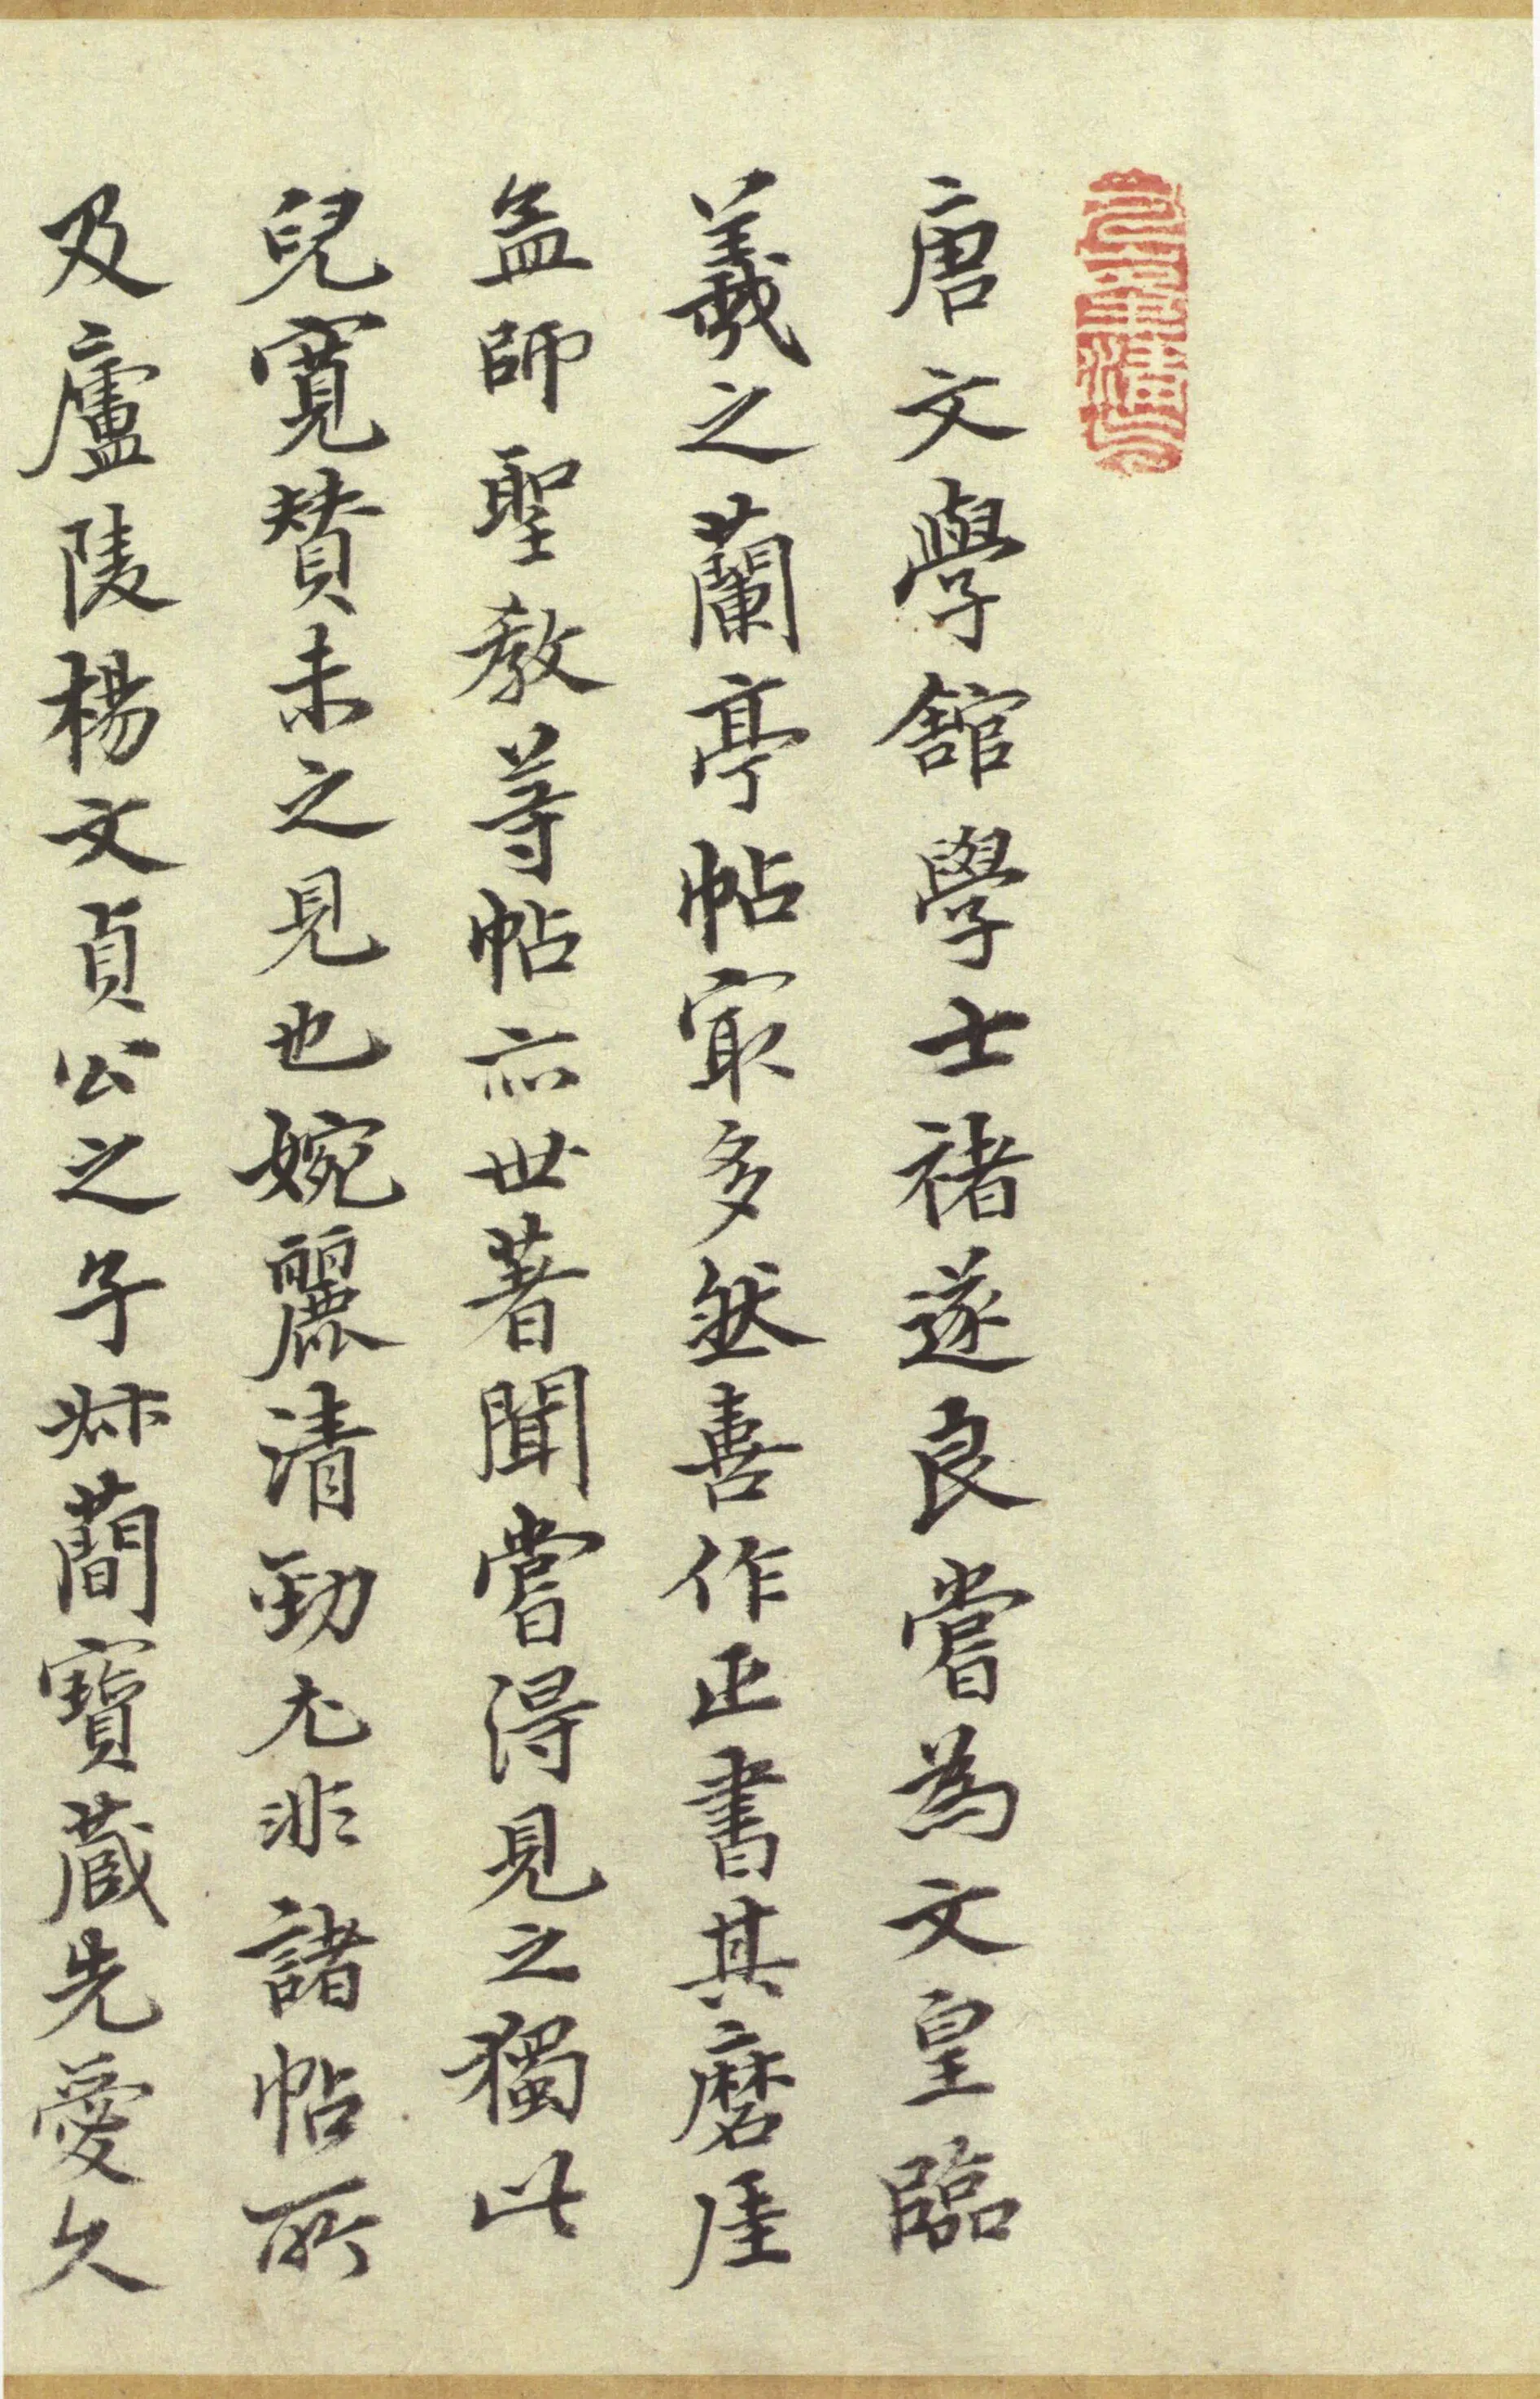 唐文學館學士褚遂良嘗為文皇臨
羲之蘭亭帖㝡多然善作正書其磨崖
孟師聖教等帖亦世著聞嘗得見之獨此
兒寬贊未之見也婉麗清勁尤非諸帖所
及廬陵楊文貞公之子叔蕳寶蔵先愛久